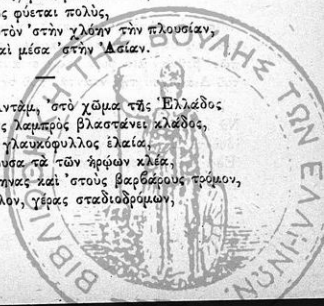 φύεται πολύς,
τὸν 'στὴν χλόην τὴν πλουσίαν,
καὶ μέσα 'στὴν Ἀσίαν.
'στὸ χῶμα τῆς Ἑλλάδος
λαμπρὸς βλαστάνει κλάδος,
γλαυκόφυλλος ἐλαία,
τὰ τῶν ἡρώων κλέα,
καὶ 'στοὺς βαρβάρους τρόμον,
γέρας σταδιοδρόμων,
ΒΙΒΛΙΟΘΗΚΗ ΤΗΣ ΒΟΥΛΗΣ ΤΩΝ ΕΛΛΗΝΩΝ